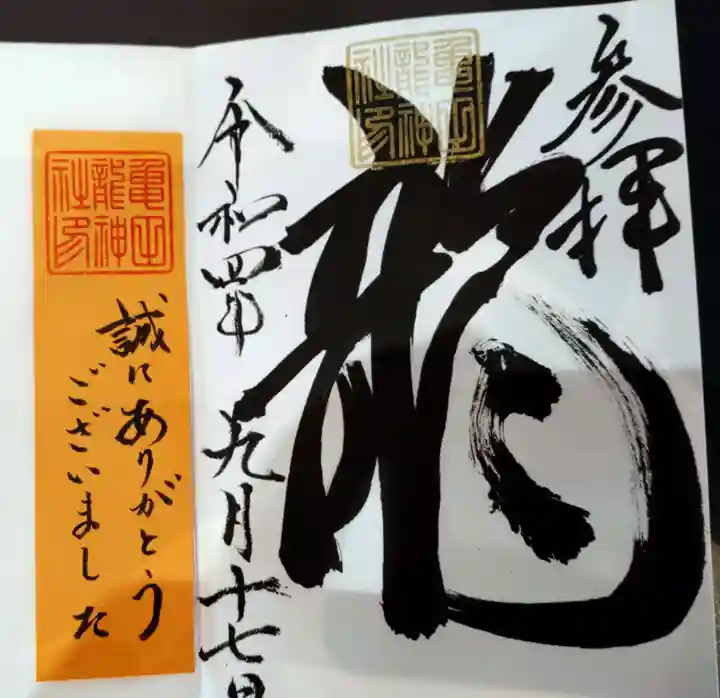 参拝
龍
亀龍
神
社印
令和四年 九月十七日
亀
龍神
社印
誠にありがとう
ございました